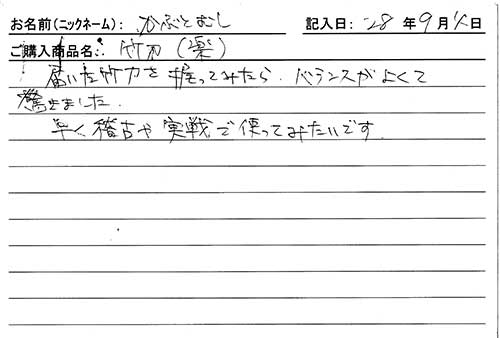 お名前(ニックネーム): かぶとむし 記入日: 28 年 9 月 日
ご購入商品名: 竹刀 (楽)
届いた竹刀を握ってみたら、バランスがよくて
驚きました.
早く稽古や実戦で使ってみたいです